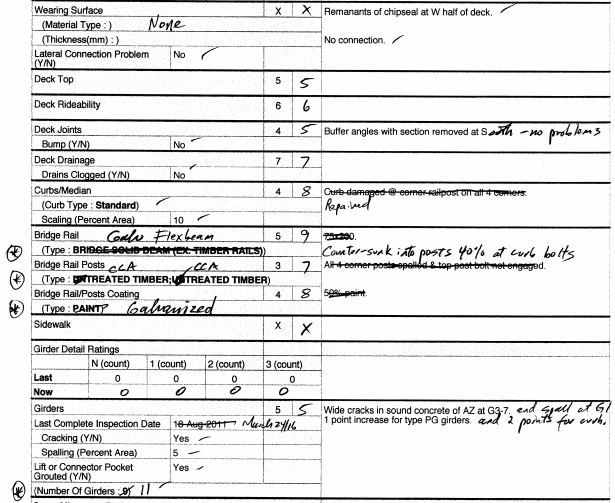 Wearing Surface X X Remanants of chipseal at W half of deck. ✓
(Material Type : ) None
(Thickness(mm) : ) No connection. ✓
Lateral Connection Problem (Y/N) No ✓
Deck Top 5 5
Deck Rideability 6 6
Deck Joints 4 5 Buffer angles with section removed at South - no problems
Bump (Y/N) No ✓
Deck Drainage 7 7
Drains Clogged (Y/N) No ✓
Curbs/Median 4 8 Curb damaged @ corner railpost on all 4 corners.
(Curb Type : Standard) ✓ Repaired
Scaling (Percent Area) 10 ✓
Bridge Rail Galv Flexbeam 5 9 75x200.
(Type : BRIDGE SOLID BEAM (EX. TIMBER RAILS)) Counter-sunk into posts 40% at curb bolts
Bridge Rail Posts CCA CCA 3 7 All 4 corner posts spalled & top post bolt not engaged.
(Type : UNTREATED TIMBER; UNTREATED TIMBER)
Bridge Rail/Posts Coating 4 8 50% paint.
(Type : PAINT) Galvanized
Sidewalk X X
Girder Detail Ratings
N (count) 1 (count) 2 (count) 3 (count)
Last 0 0 0 0
Now 0 0 0 0
Girders 5 5 Wide cracks in sound concrete of AZ at G3-7. and spall at G1
Last Complete Inspection Date 18-Aug-2011 March 24/16 1 point increase for type PG girders. and 2 points for curb.
Cracking (Y/N) Yes ✓
Spalling (Percent Area) 5 ✓
Lift or Connector Pocket Grouted (Y/N) Yes ✓
(Number Of Girders : 9) 11 ✓